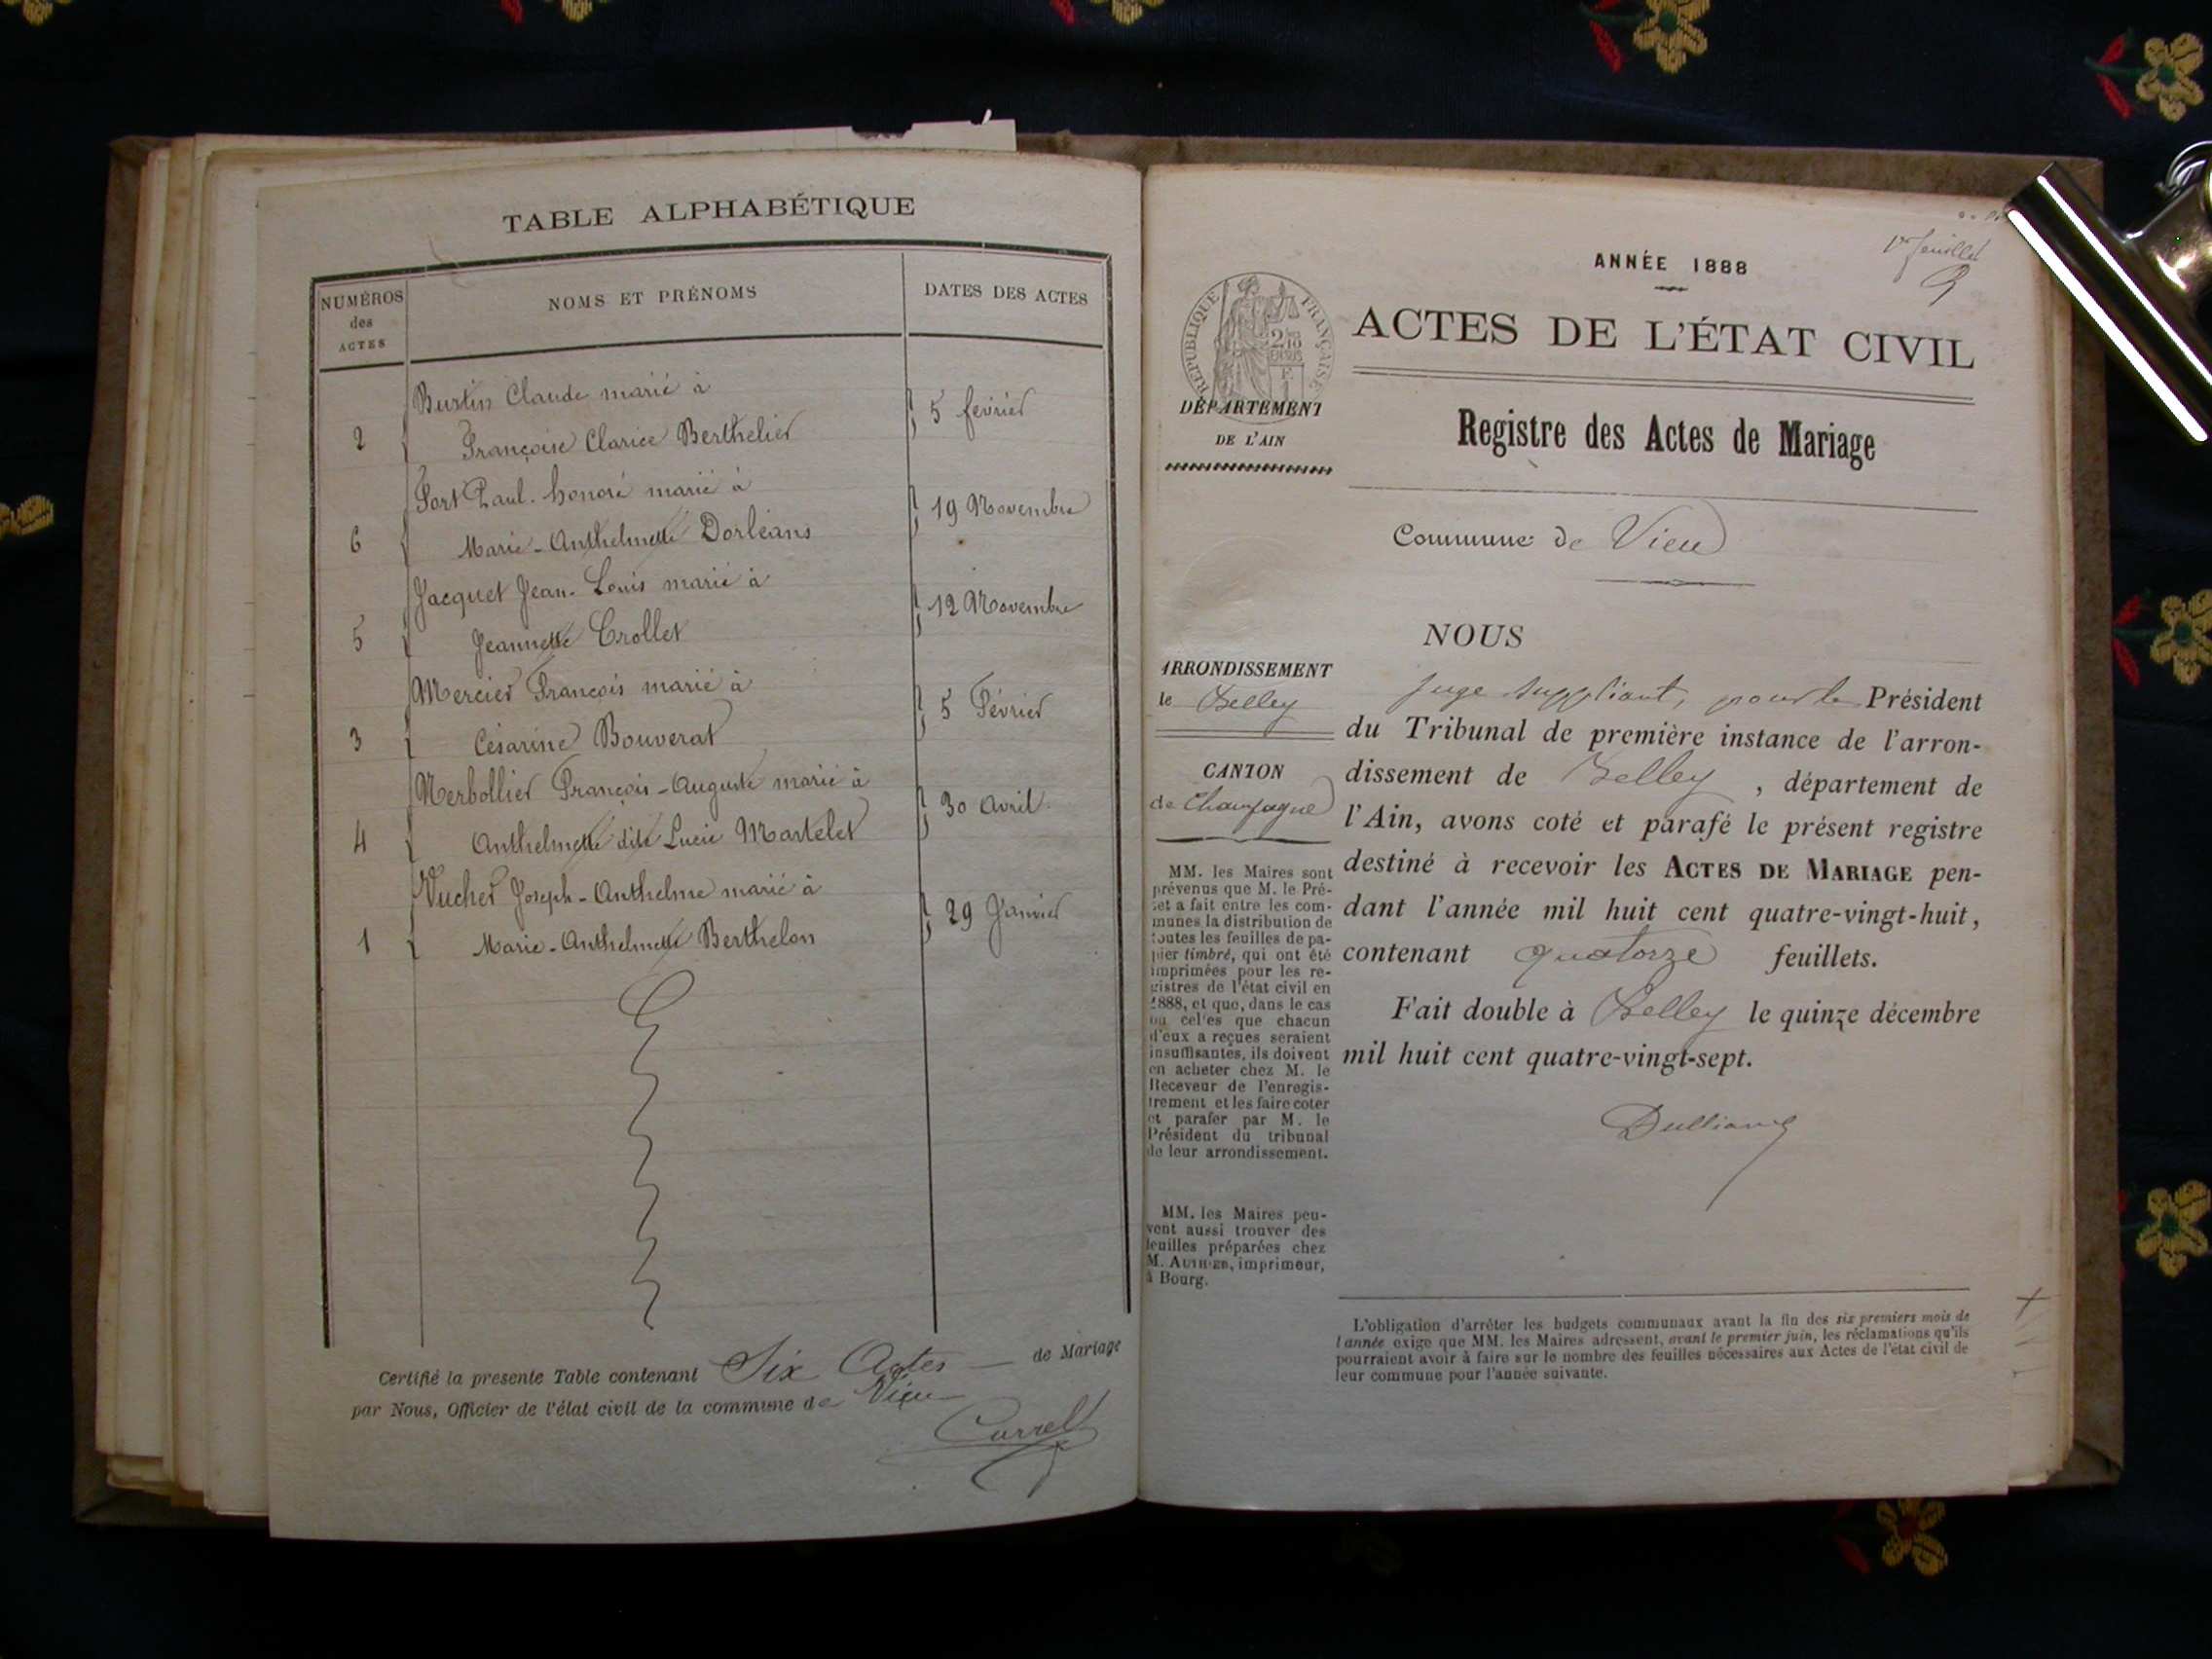 TABLE ALPHABÉTIQUE
NUMÉROS
des
ACTES
NOMS ET PRÉNOMS
DATES DES ACTES
Burtin Claude marié à
2 Françoise Clarice Berthelier
5 février
Fort Paul-honoré marié à
6 Marie-Anthelmette Dorléans
19 Novembre
Jacquet Jean-Louis marié à
5 Jeannette Crollet
12 Novembre
Mercier François marié à
3 Césarine Bouverat
5 Février
Merbollier François-Auguste marié à
4 Anthelmette dite Lucie Martelet
30 avril
Vucher Joseph-Anthelme marié à
1 Marie-Anthelmette Berthelon
29 Janvier
Certifié la presente Table contenant Six Actes de Mariage
par Nous, Officier de l'état civil de la commune de Vieu
Carrel
1er feuillet
ANNÉE 1888
RÉPUBLIQUE FRANÇAISE
ACTES DE L'ÉTAT CIVIL
DÉPARTEMENT
DE L'AIN
Registre des Actes de Mariage
Commune de Vieu
ARRONDISSEMENT
de Belley
CANTON
de Champagne
MM. les Maires sont
prévenus que M. le Pré-
fet a fait entre les com-
munes la distribution de
toutes les feuilles de pa-
pier timbré, qui ont été
imprimées pour les re-
gistres de l'état civil en
1888, et que, dans le cas
où celles que chacun
d'eux a reçues seraient
insuffisantes, ils doivent
en acheter chez M. le
Receveur de l'enregis-
trement et les faire coter
et parafer par M. le
Président du tribunal
de leur arrondissement.
MM. les Maires peu-
vent aussi trouver des
feuilles préparées chez
M. AUTHIER, imprimeur,
à Bourg.
NOUS
Juge suppléant, pour le Président
du Tribunal de première instance de l'arron-
dissement de Belley, département de
l'Ain, avons coté et parafé le présent registre
destiné à recevoir les ACTES DE MARIAGE pen-
dant l'année mil huit cent quatre-vingt-huit,
contenant quatorze feuillets.
Fait double à Belley le quinze décembre
mil huit cent quatre-vingt-sept.
L'obligation d'arrêter les budgets communaux avant la fin des six premiers mois de
l'année exige que MM. les Maires adressent, avant le premier juin, les réclamations qu'ils
pourraient avoir à faire sur le nombre des feuilles nécessaires aux Actes de l'état civil de
leur commune pour l'année suivante.